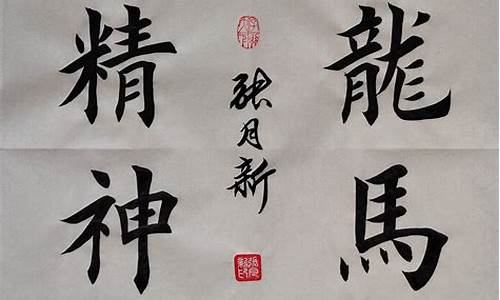 龍馬
精神
張月新